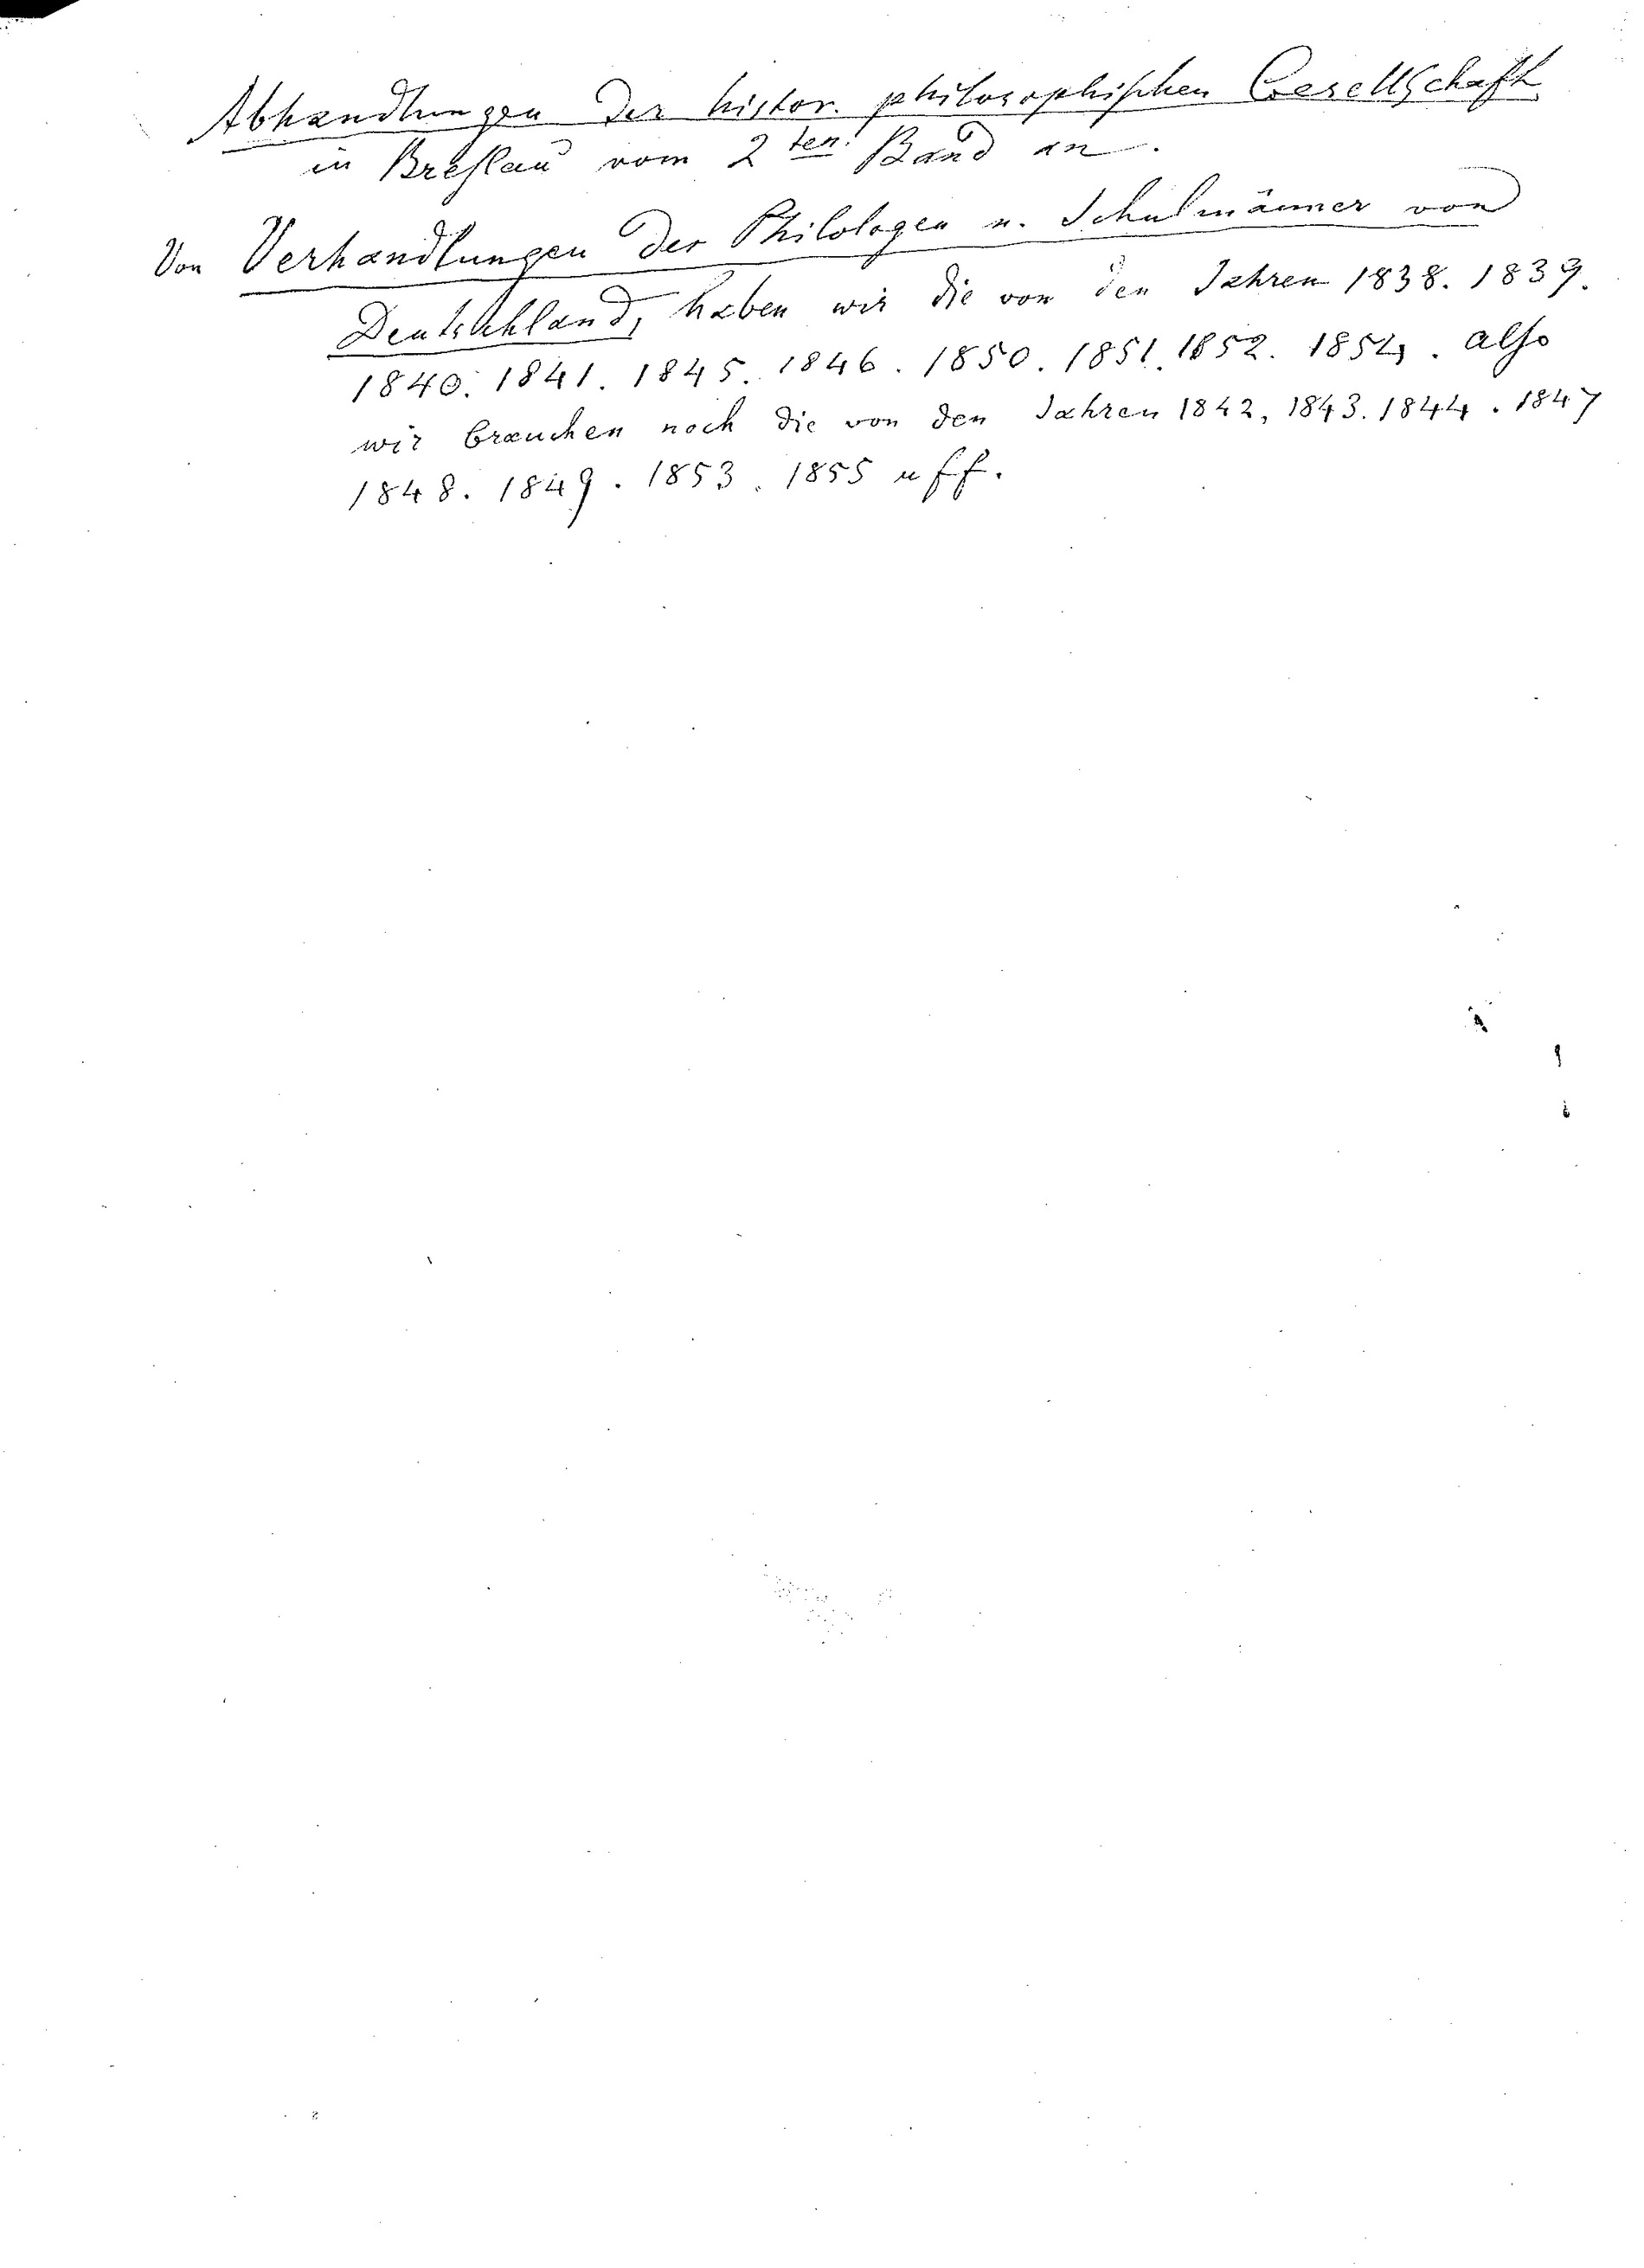 Abhandlungen der histor. philosophischen Gesellschaft
in Breslau vom 2ten Band an.
Von Verhandlungen der Philologen u. Schulmänner von
Deutschland, haben wir die von den Jahren 1838. 1839.
1840. 1841. 1845. 1846. 1850. 1851. 1852. 1854. also
wir brauchen noch die von den Jahren 1842, 1843. 1844. 1847
1848. 1849. 1853. 1855 uff.